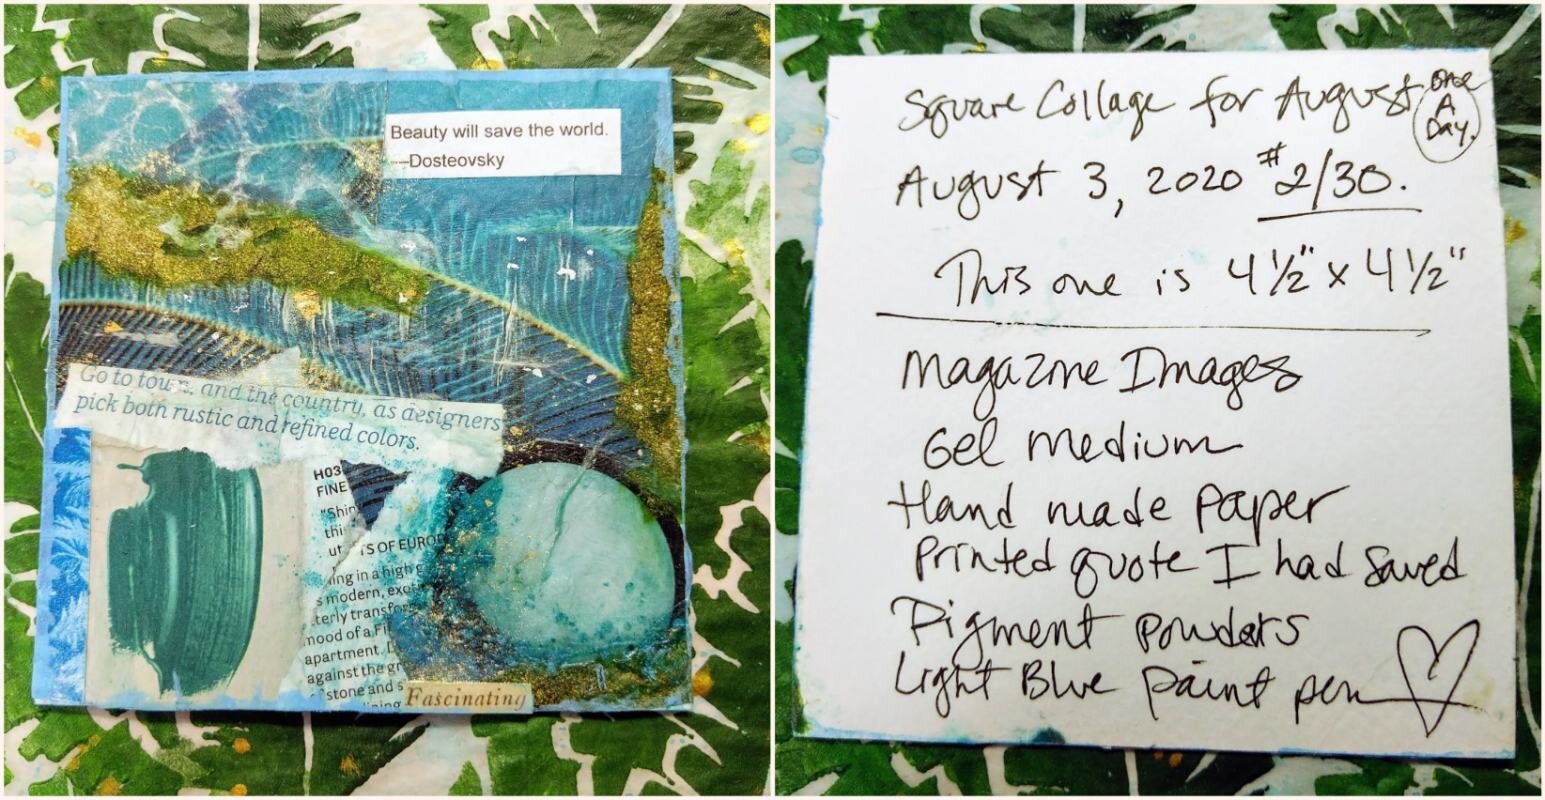 Beauty will save the world.
—Dosteovsky
Go to town, and the country, as designers
pick both rustic and refined colors.
H03
FINE
"Shin
thi
ut
TS OF EUROP
ing in a high g
s modern, exot
terly transfor
mood of a Fi
apartment. D
against the gr
stone and s
ining
Fascinating
Square Collage for August
One
A
Day.
August 3, 2020 #2/30.
This one is 4 1/2" x 4 1/2"
Magazine Images
Gel Medium
Hand made paper
Printed quote I had saved
Pigment powders
Light Blue paint pen